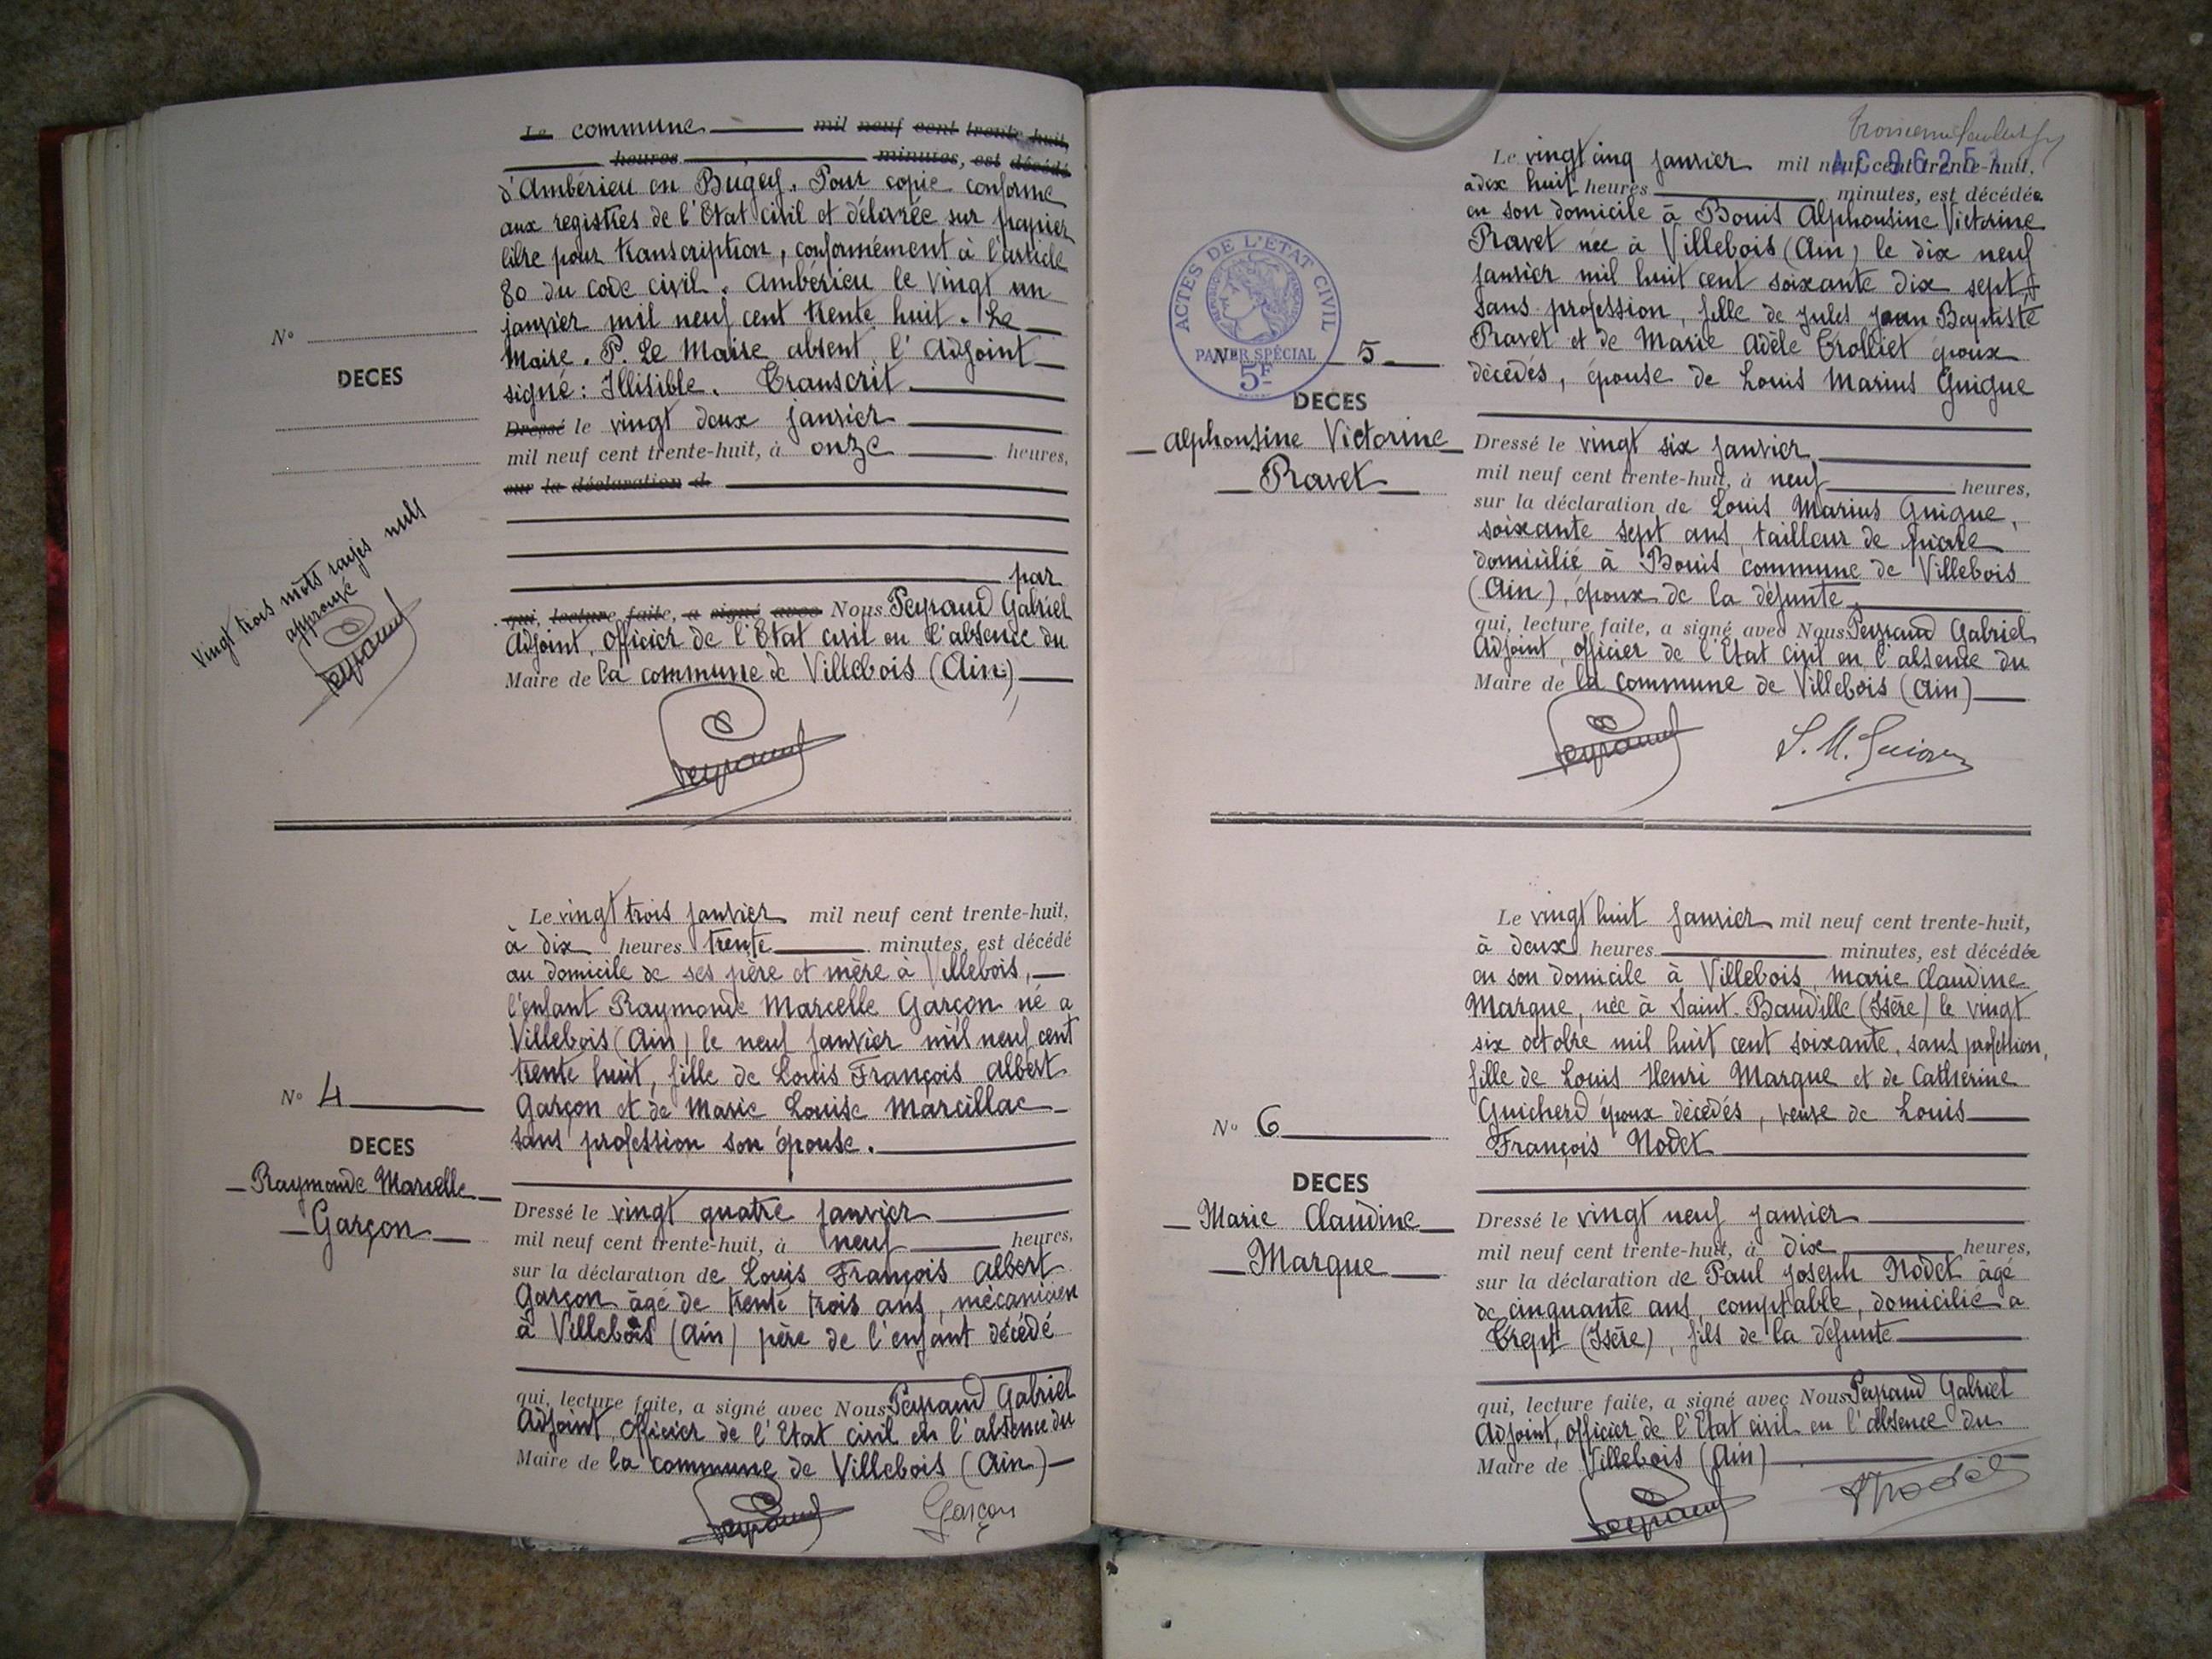 Le commune mil neuf cent trente-huit,
heures minutes, est décédé
d'Ambérieu en Bugey. Pour copie conforme
aux registres de l'Etat civil et délivrée sur papier
libre pour transcription, conformément à l'article
80 du code civil. Ambérieu le vingt un
janvier mil neuf cent trente huit. Le
Maire. P. Le Maire absent, l'Adjoint
signé : Illisible. Transcrit.
Dressé le vingt deux janvier
mil neuf cent trente-huit, à onze heures,
sur la déclaration d
par
qui, lecture faite, a signé avec Nous Peyraud Gabriel
Adjoint, Officier de l'Etat civil en l'absence du
Maire de la commune de Villebois (Ain)
Peyraud
N°
DECES
Vingt trois mots rayés nuls
approuvé
Peyraud
Le vingt trois janvier mil neuf cent trente-huit,
à dix heures trente minutes, est décédé
au domicile de ses père et mère à Villebois,
l'enfant Raymonde Marcelle Garçon né a
Villebois (Ain) le neuf janvier mil neuf cent
trente huit, fille de Louis François Albert
Garçon et de Marie Louise Marcillac
sans profession son épouse.
N° 4
DECES
Raymonde Marcelle
Garçon
Dressé le vingt quatre janvier
mil neuf cent trente-huit, à neuf heures,
sur la déclaration de Louis François Albert
Garçon âgé de trente trois ans, mécanicien
à Villebois (Ain) père de l'enfant décédé
qui, lecture faite, a signé avec Nous Peyraud Gabriel
Adjoint, Officier de l'Etat civil en l'absence du
Maire de la commune de Villebois (Ain)
Peyraud Garçon
Le vingt cinq janvier mil neuf cent trente-huit,
à dix huit heures minutes, est décédée
en son domicile à Bouis Alphonsine Victorine
Ravet née à Villebois (Ain) le dix neuf
janvier mil huit cent soixante dix sept
sans profession, fille de Jules Jean Baptiste
Ravet et de Marie Adèle Trolliet époux
décédés, épouse de Louis Marius Guigue
ACTES DE L'ETAT CIVIL
PAPIER SPÉCIAL
5F
N° 5
DECES
Alphonsine Victorine
Ravet
Dressé le vingt six janvier
mil neuf cent trente-huit, à neuf heures,
sur la déclaration de Louis Marius Guigue,
soixante sept ans, tailleur de pierre
domicilié à Bouis commune de Villebois
(Ain), époux de la défunte,
qui, lecture faite, a signé avec Nous Peyraud Gabriel
Adjoint, officier de l'Etat civil en l'absence du
Maire de la commune de Villebois (Ain)
Peyraud L. M. Guigue
Le vingt huit janvier mil neuf cent trente-huit,
à deux heures minutes, est décédée
en son domicile à Villebois, Marie Claudine
Marque, née à Saint-Baudille (Isère) le vingt
six octobre mil huit cent soixante, sans profession,
fille de Louis Henri Marque et de Catherine
Guicherd époux décédés, veuve de Louis
François Nodet
N° 6
DECES
Marie Claudine
Marque
Dressé le vingt neuf janvier
mil neuf cent trente-huit, à dix heures,
sur la déclaration de Paul Joseph Nodet âgé
de cinquante ans, comptable, domicilié a
Trept (Isère), fils de la défunte
qui, lecture faite, a signé avec Nous Peyraud Gabriel
Adjoint, officier de l'Etat civil en l'absence du
Maire de Villebois (Ain)
Peyraud Nodet